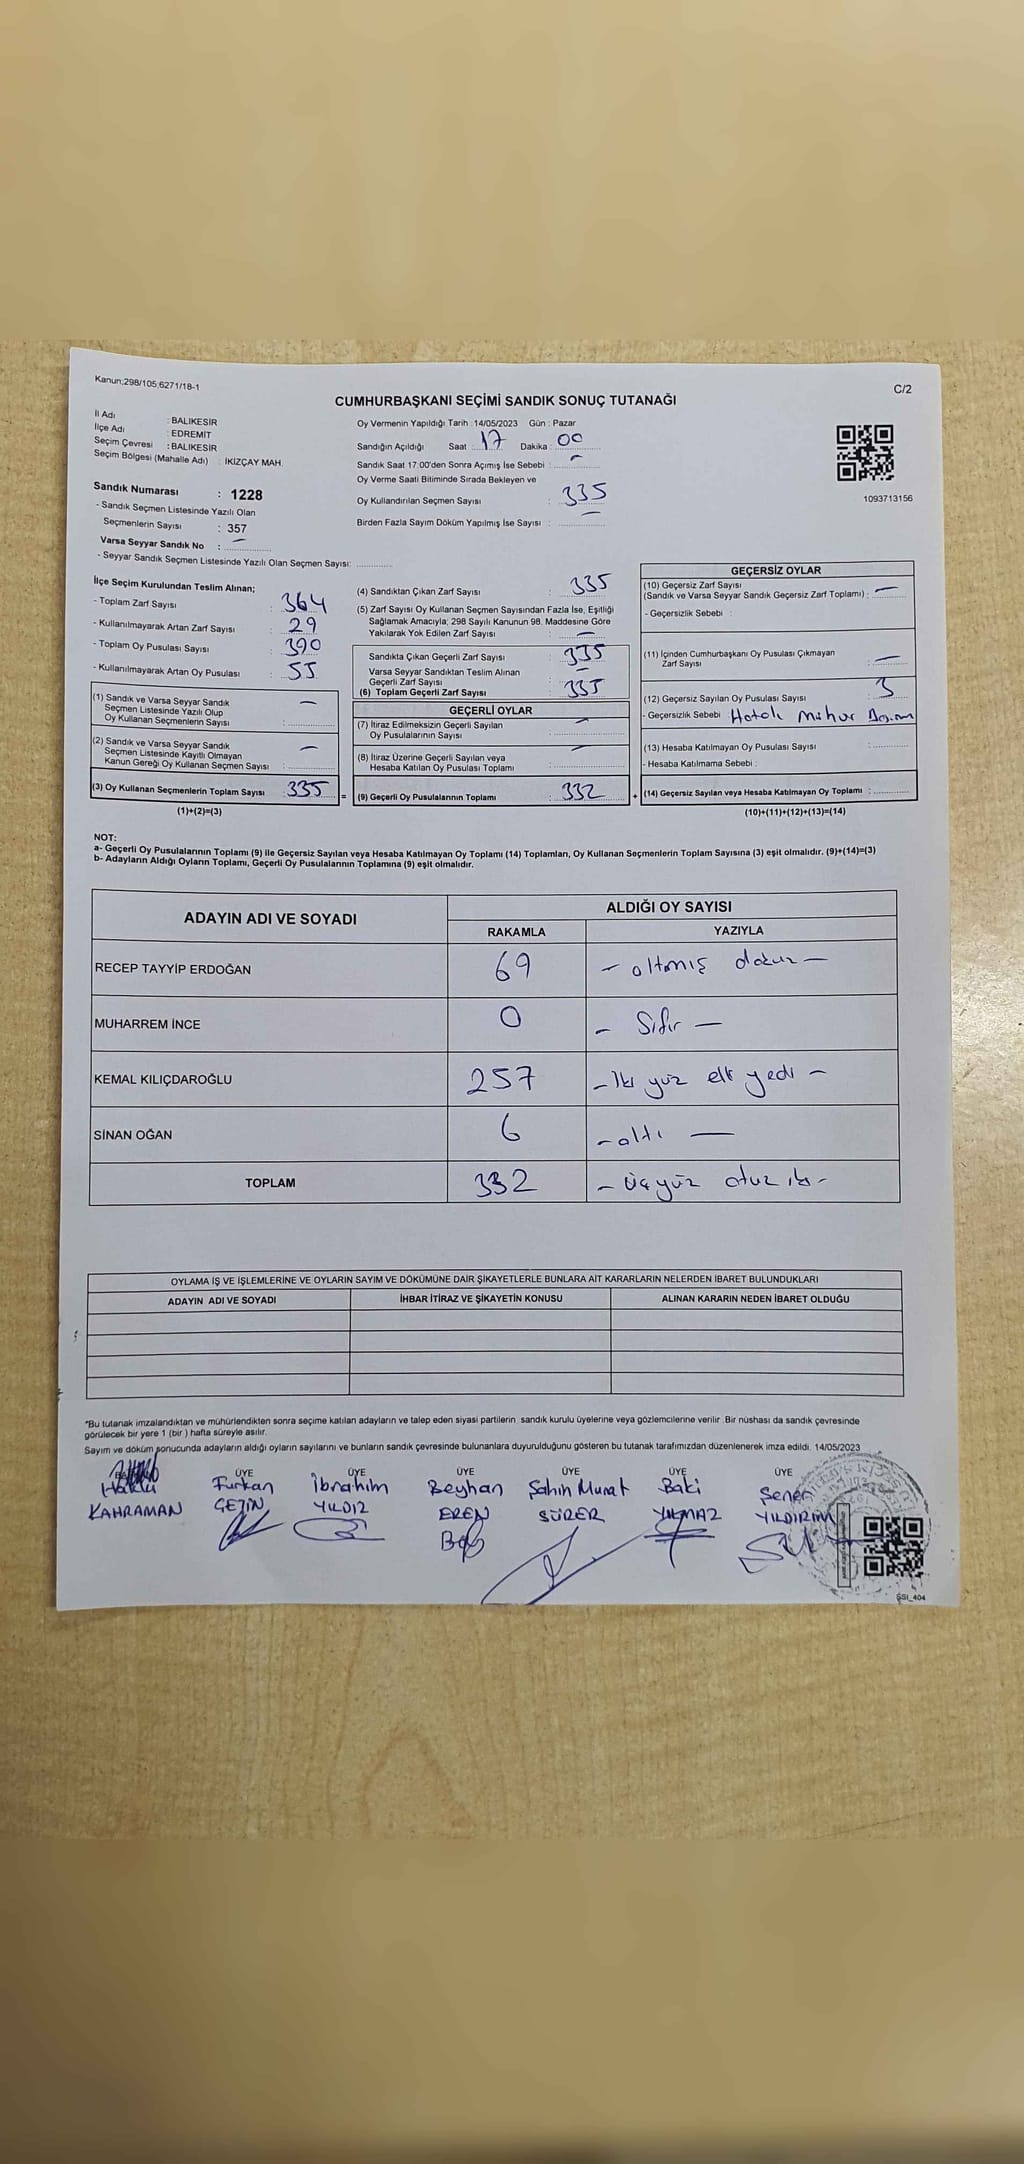 Kanun:298/105;6271/18-1
C/2
CUMHURBAŞKANI SEÇİMİ SANDIK SONUÇ TUTANAĞI
İl Adı : BALIKESİR
İlçe Adı : EDREMİT
Seçim Çevresi : BALIKESİR
Seçim Bölgesi (Mahalle Adı) : İKİZÇAY MAH.
Sandık Numarası : 1228
- Sandık Seçmen Listesinde Yazılı Olan
Seçmenlerin Sayısı : 357
Varsa Seyyar Sandık No : —
- Seyyar Sandık Seçmen Listesinde Yazılı Olan Seçmen Sayısı:
Oy Vermenin Yapıldığı Tarih : 14/05/2023 Gün : Pazar
Sandığın Açıldığı Saat : 17 Dakika : 00
Sandık Saat 17:00'den Sonra Açımış İse Sebebi : —
Oy Verme Saati Bitiminde Sırada Bekleyen ve
Oy Kullandırılan Seçmen Sayısı : 335
Birden Fazla Sayım Döküm Yapılmış İse Sayısı : —
1093713156
İlçe Seçim Kurulundan Teslim Alınan;
- Toplam Zarf Sayısı : 364
- Kullanılmayarak Artan Zarf Sayısı : 29
- Toplam Oy Pusulası Sayısı : 390
- Kullanılmayarak Artan Oy Pusulası : 55
(1) Sandık ve Varsa Seyyar Sandık
Seçmen Listesinde Yazılı Olup
Oy Kullanan Seçmenlerin Sayısı : —
(2) Sandık ve Varsa Seyyar Sandık
Seçmen Listesinde Kayıtlı Olmayan
Kanun Gereği Oy Kullanan Seçmen Sayısı : —
(3) Oy Kullanan Seçmenlerin Toplam Sayısı : 335 =
(1)+(2)=(3)
(4) Sandıktan Çıkan Zarf Sayısı : 335
(5) Zarf Sayısı Oy Kullanan Seçmen Sayısından Fazla İse, Eşitliği
Sağlamak Amacıyla; 298 Sayılı Kanunun 98. Maddesine Göre
Yakılarak Yok Edilen Zarf Sayısı : —
Sandıkta Çıkan Geçerli Zarf Sayısı : 335
Varsa Seyyar Sandıktan Teslim Alınan
Geçerli Zarf Sayısı : —
(6) Toplam Geçerli Zarf Sayısı : 335
GEÇERLİ OYLAR
(7) İtiraz Edilmeksizin Geçerli Sayılan
Oy Pusulalarının Sayısı : —
(8) İtiraz Üzerine Geçerli Sayılan veya
Hesaba Katılan Oy Pusulası Toplamı : —
(9) Geçerli Oy Pusulalarının Toplamı : 332 +
GEÇERSİZ OYLAR
(10) Geçersiz Zarf Sayısı
(Sandık ve Varsa Seyyar Sandık Geçersiz Zarf Toplamı) : —
- Geçersizlik Sebebi :
(11) İçinden Cumhurbaşkanı Oy Pusulası Çıkmayan
Zarf Sayısı : —
(12) Geçersiz Sayılan Oy Pusulası Sayısı : 3
- Geçersizlik Sebebi : Hatalı Mühür
(13) Hesaba Katılmayan Oy Pusulası Sayısı :
- Hesaba Katılmama Sebebi :
(14) Geçersiz Sayılan veya Hesaba Katılmayan Oy Toplamı :
(10)+(11)+(12)+(13)=(14)
NOT:
a- Geçerli Oy Pusulalarının Toplamı (9) ile Geçersiz Sayılan veya Hesaba Katılmayan Oy Toplamı (14) Toplamları, Oy Kullanan Seçmenlerin Toplam Sayısına (3) eşit olmalıdır. (9)+(14)=(3)
b- Adayların Aldığı Oyların Toplamı, Geçerli Oy Pusulalarının Toplamına (9) eşit olmalıdır.
ADAYIN ADI VE SOYADI
ALDIĞI OY SAYISI
RAKAMLA YAZIYLA
RECEP TAYYİP ERDOĞAN 69 — altmış dokuz —
MUHARREM İNCE 0 — Sıfır —
KEMAL KILIÇDAROĞLU 257 — İki yüz elli yedi —
SİNAN OĞAN 6 — altı —
TOPLAM 332 — üçyüz otuz iki —
OYLAMA İŞ VE İŞLEMLERİNE VE OYLARIN SAYIM VE DÖKÜMÜNE DAİR ŞİKAYETLERLE BUNLARA AİT KARARLARIN NELERDEN İBARET BULUNDUKLARI
ADAYIN ADI VE SOYADI İHBAR İTİRAZ VE ŞİKAYETİN KONUSU ALINAN KARARIN NEDEN İBARET OLDUĞU
*Bu tutanak imzalandıktan ve mühürlendikten sonra seçime katılan adayların ve talep eden siyasi partilerin sandık kurulu üyelerine veya gözlemcilerine verilir. Bir nüshası da sandık çevresinde
görülecek bir yere 1 (bir) hafta süreyle asılır.
Sayım ve döküm sonucunda adayların aldığı oyların sayılarını ve bunların sandık çevresinde bulunanlara duyurulduğunu gösteren bu tutanak tarafımızdan düzenlenerek imza edildi. 14/05/2023
ÜYE ÜYE ÜYE ÜYE ÜYE ÜYE
Furkan İbrahim Beyhan Şahin Murat Baki Şener
KAHRAMAN GEZİN YILDIZ EREN SÜRER YILMAZ YILDIRIM
SSI_404